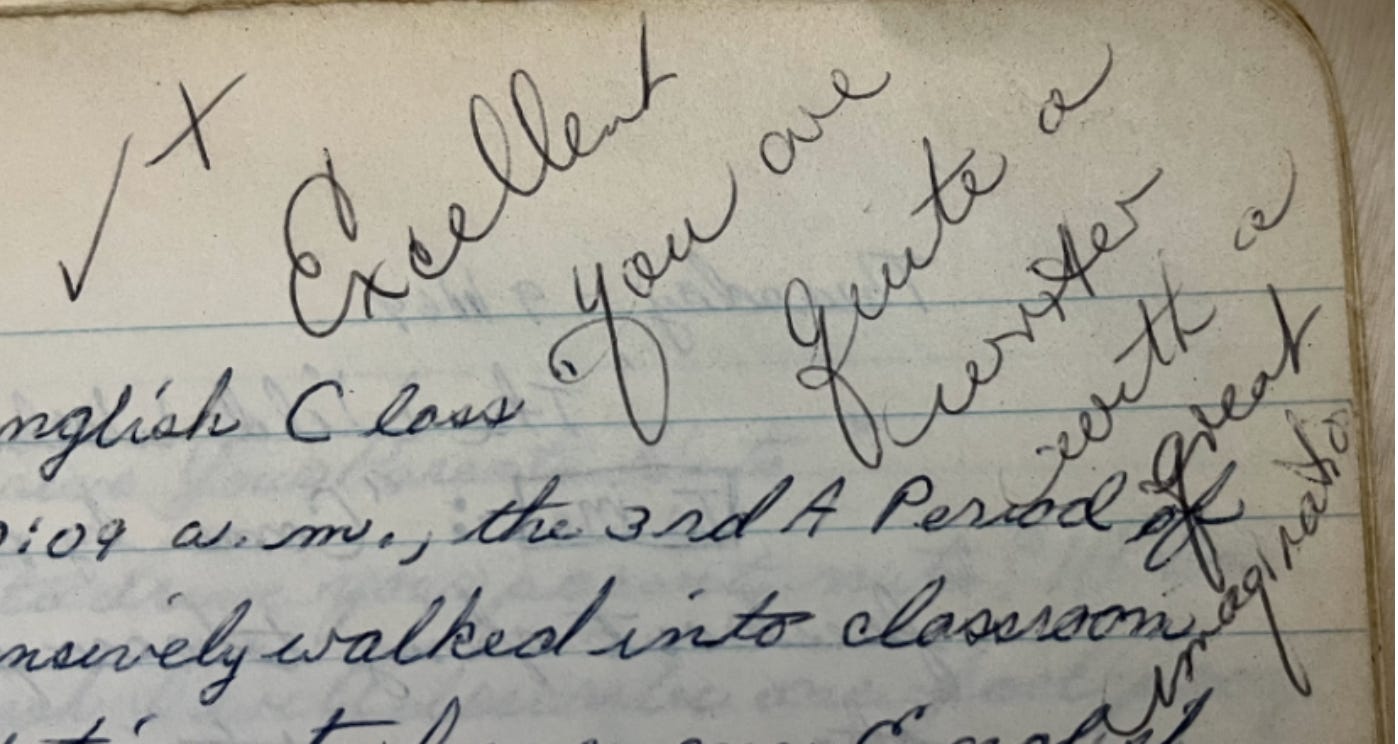 ✓+
Excellent
You are
quite a
writer
with a
great
imaginatio
nglish Class
:09 a.m., the 3rd A Period of
nsively walked into classroom